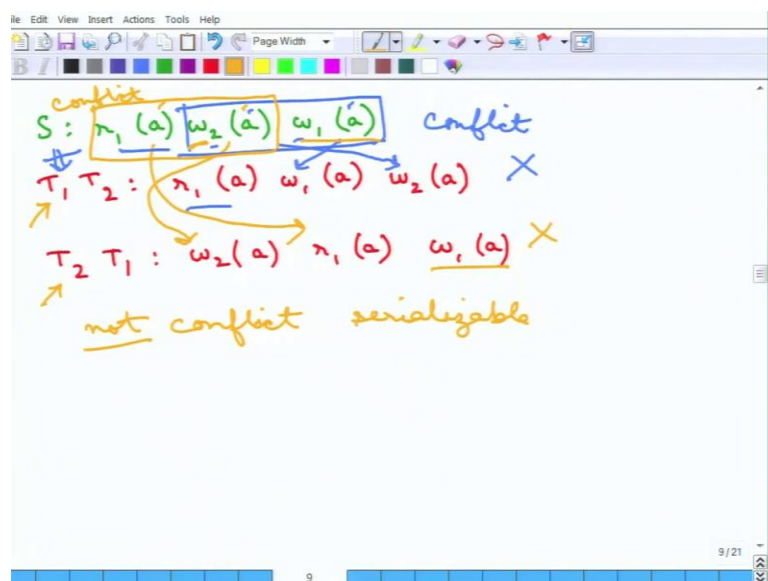 ile Edit View Insert Actions Tools Help
Page Width
B I
conflict
S : r₁ (a) w₂ (a) w₁ (a) conflict
T₁ T₂ : r₁ (a) w₁ (a) w₂ (a) X
T₂ T₁ : w₂ (a) r₁ (a) w₁ (a) X
not conflict serializable
9/21
9